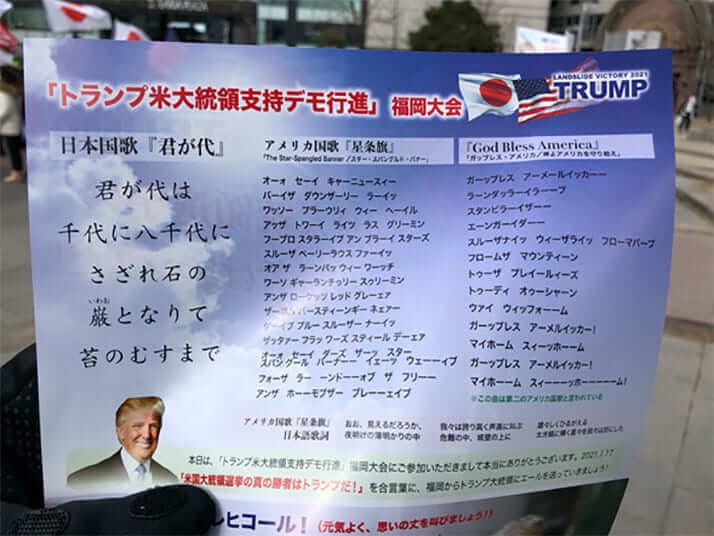 「トランプ米大統領支持デモ行進」 福岡大会
LANDSLIDE VICTORY 2021
TRUMP
日本国歌『君が代』
君が代は
千代に八千代に
さざれ石の
いわお
巌となりて
苔のむすまで
アメリカ国歌『星条旗』
「The Star-Spangled Banner /スター・スパングルド・バナー」
オーォ セーイ キャーニュースィー
バーイザ ダウンザーリー ラーイッ
ワッソー プラーウリィ ウィー ヘーイル
アッザ トワーイ ライツ ラス グリーミン
フーブロ スタラーイプ アン ブライ スターズ
スルーザ ペーリーラウス ファーイッ
オアザ ラーンパッ ウィー ワーッチ
ワーソ ギャーランチゥリー スゥリーミン
アンザ ローケッツ レッド グレーェア
バースティーンギー ネェアー
ブルー スルーザー ナーイッ
ザッタァー フラッ ワーズ スティール デーェア
オーォ セーイ ダーズ ザーッ スター
スパングール バーナーー イェーッ ウェーーイブ
フォーザ ラー ーンドーーオブ ザ フリーー
アンザ ホーーモブザー ブレーーェイブ
『God Bless America』
「ガップレス・アメリカ/神よアメリカを守り給え」
ガーップレス アーメールイッカーー
ラーンダッラーイラーーブ
スタンビラーイザーー
エーンガーイダーー
スルーザナイッ ウィーザライッ フローマバーブ
フロームザ マウンティーン
トゥーザ プレイールィーズ
トゥーディ オゥーシャーン
ウァイ ウィッフォーーム
ガーップレス アーメルイッカー!
マイホーム スィーッホーーム
ガーップレス アーメルイッカー!
マイホーーム スィーーーッホーーーーーム!
※この曲は第二のアメリカ国歌と言われている
アメリカ国歌『星条旗』
日本語歌詞
おお、見えるだろうか、
夜明けの薄明かりの中
我々は誇り高く声高に叫ぶ
危難の中、城壁の上に
雄々しくひるがえる
本日は、「トランプ米大統領支持デモ行進」福岡大会にご参加いただきまして本当にありがとうございます。2021.1.17
「米国大統領選挙の真の勝者はトランプだ!」を合言葉に、福岡からトランプ大統領にエールを送っていきましょう!
レヒコール!(元気よく、思いの丈を叫びましょう!!